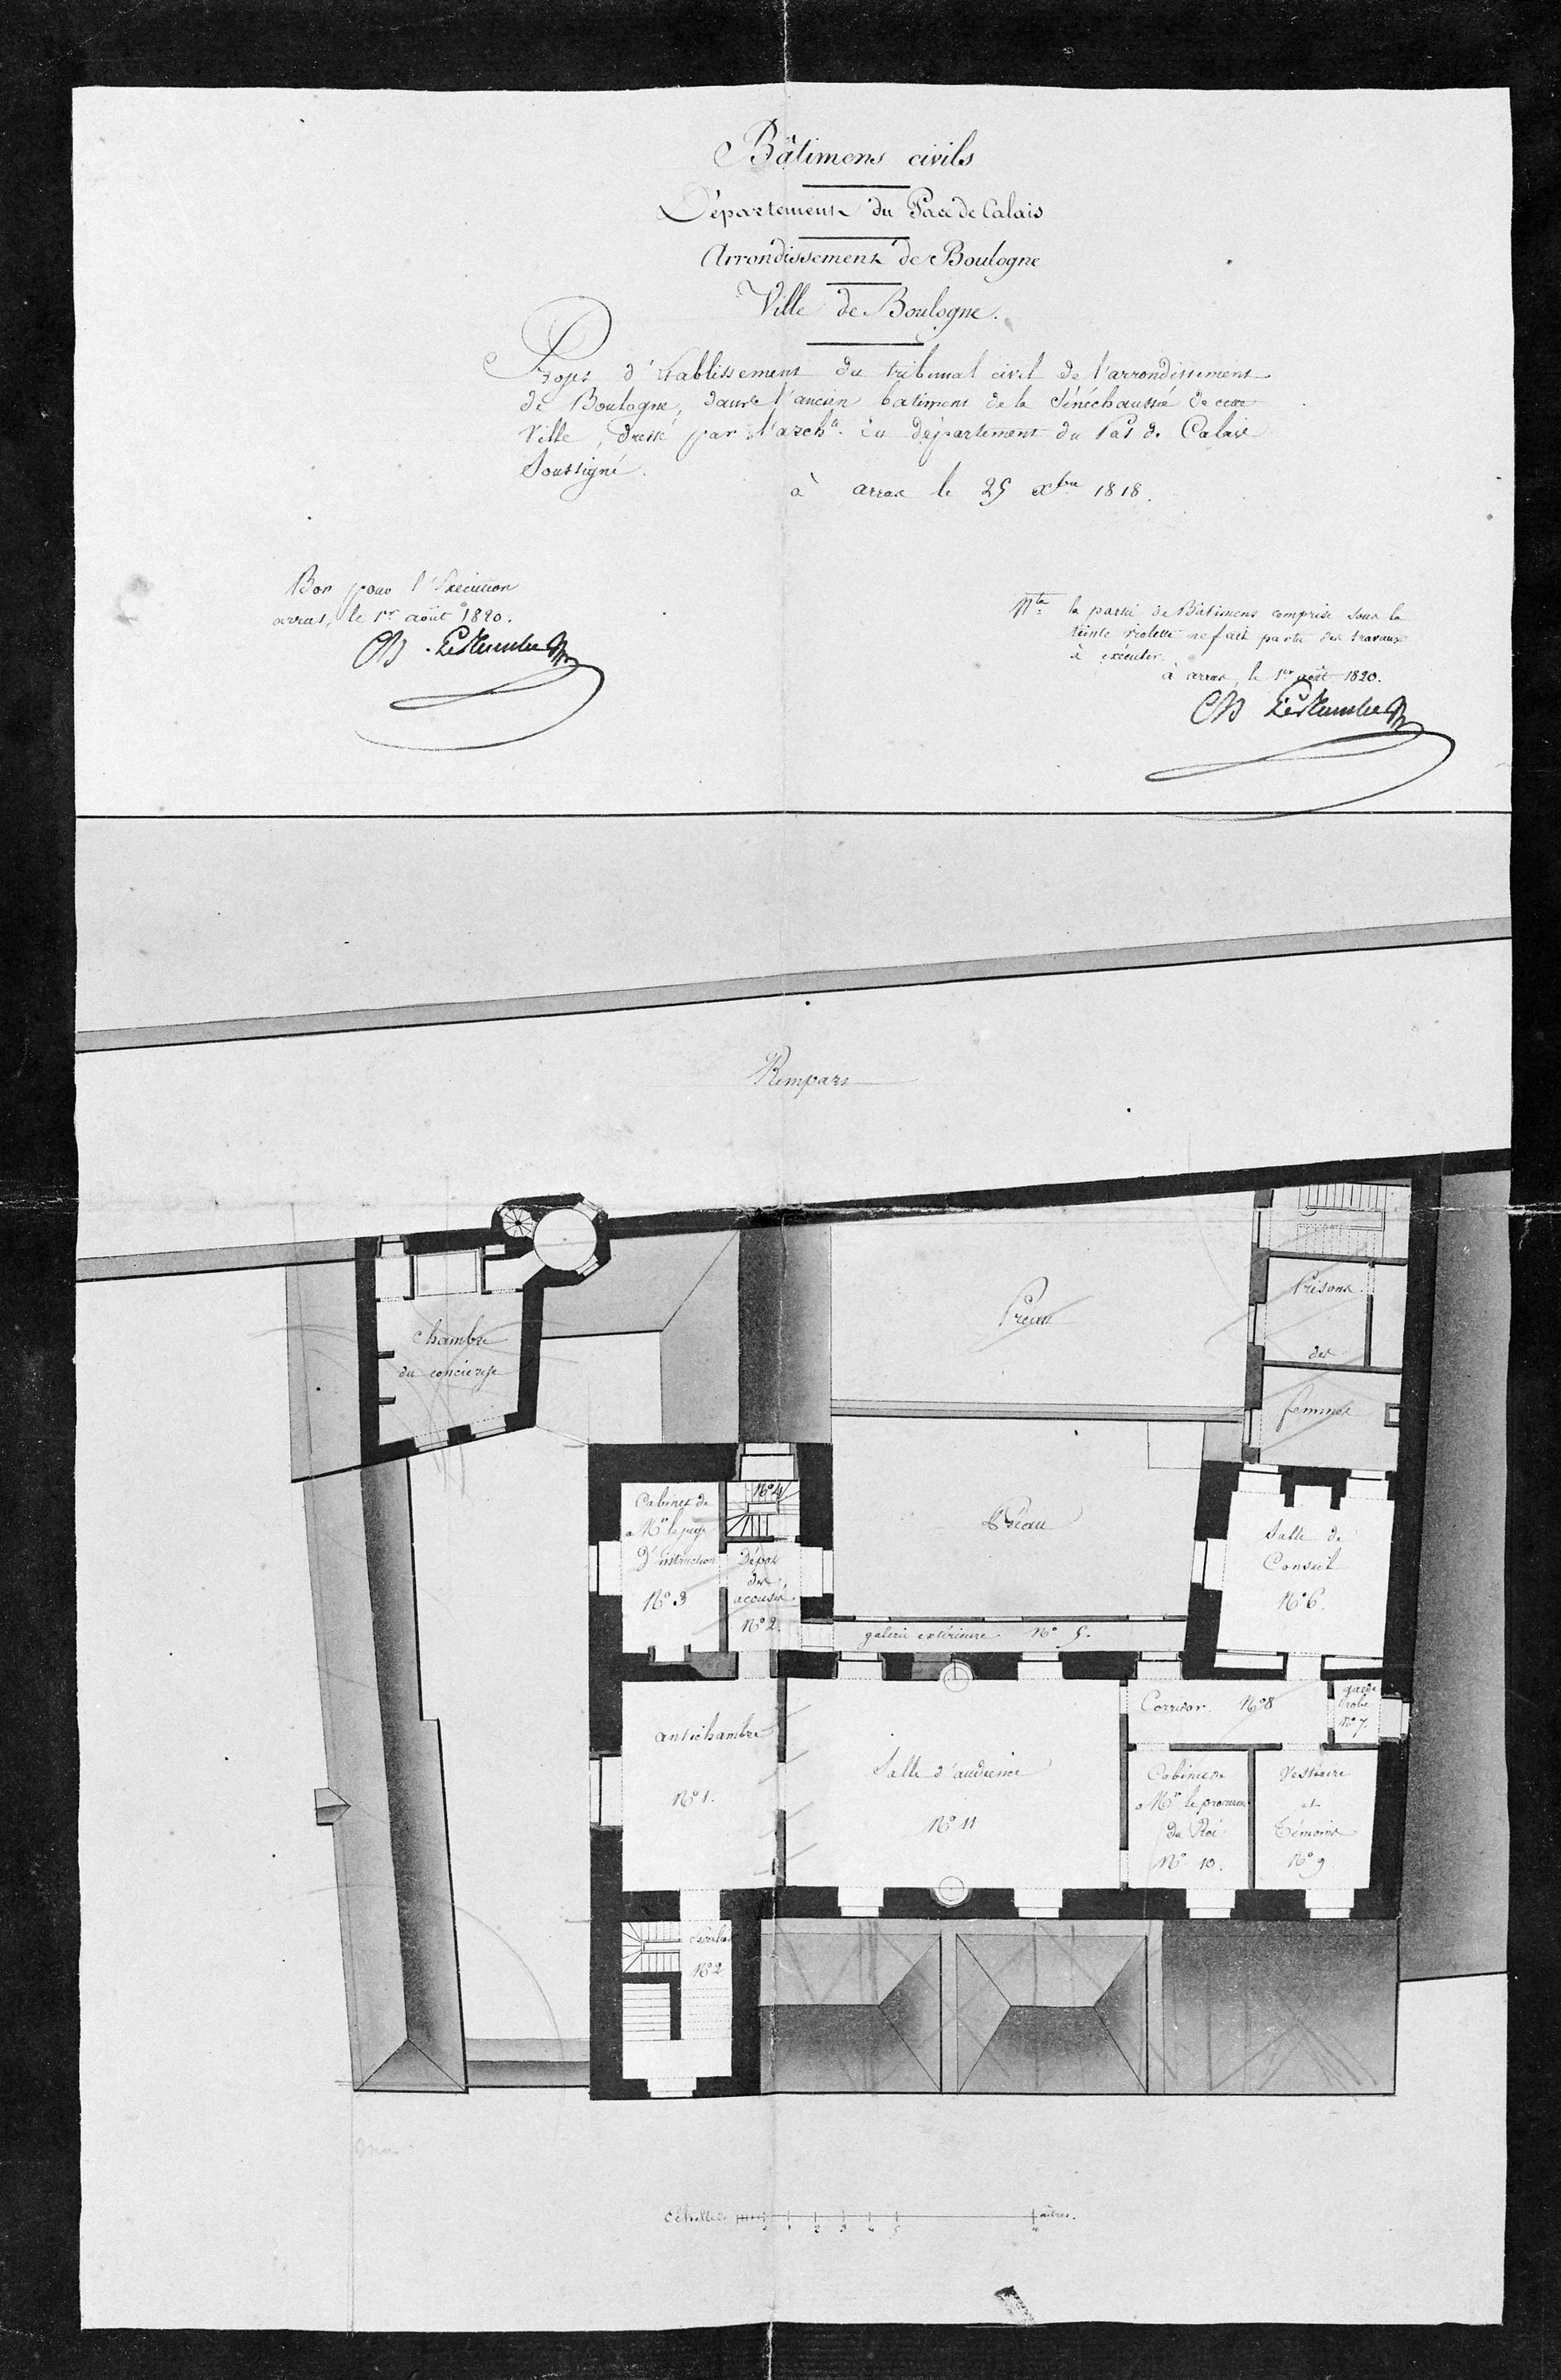 Bâtimens civils
Département du Pas de Calais
Arrondissement de Boulogne
Ville de Boulogne.
Projet d'Etablissement du tribunal civil de l'arrondissement
de Boulogne, dans l'ancien batiment de la Sénéchaussée de cette
Ville, dressé par l'archte. du département du Pas de Calais
Soussigné.
à arras le 25 Xbre 1818.
Bon pour l'Exécution
arras, le 1er août 1820.
Nta la partie de Bâtimens comprise sous la
teinte violette ne fait partie des travaux
à exécuter.
à arras, le 1er août 1820.
Rempart
chambre
du concierge
Préau
Prisons
des
femmes
Cabinet de
Mr le juge
D'instruction
No 3
No 4
Dépôt
des
accusés.
No 2.
Préau
galerie extérieure. No 5.
Salle de
Conseil
No 6.
antichambre
No 1.
Salle d'audience
No 11
Corridor. No 8
garde
robe
No 7.
Cabinet de
Mr le procureur
Du Roi
No 10.
Vestiaire
et
Témoins
No 9
No 2
Echelle de
1 2 3 4 5
10
mètres.